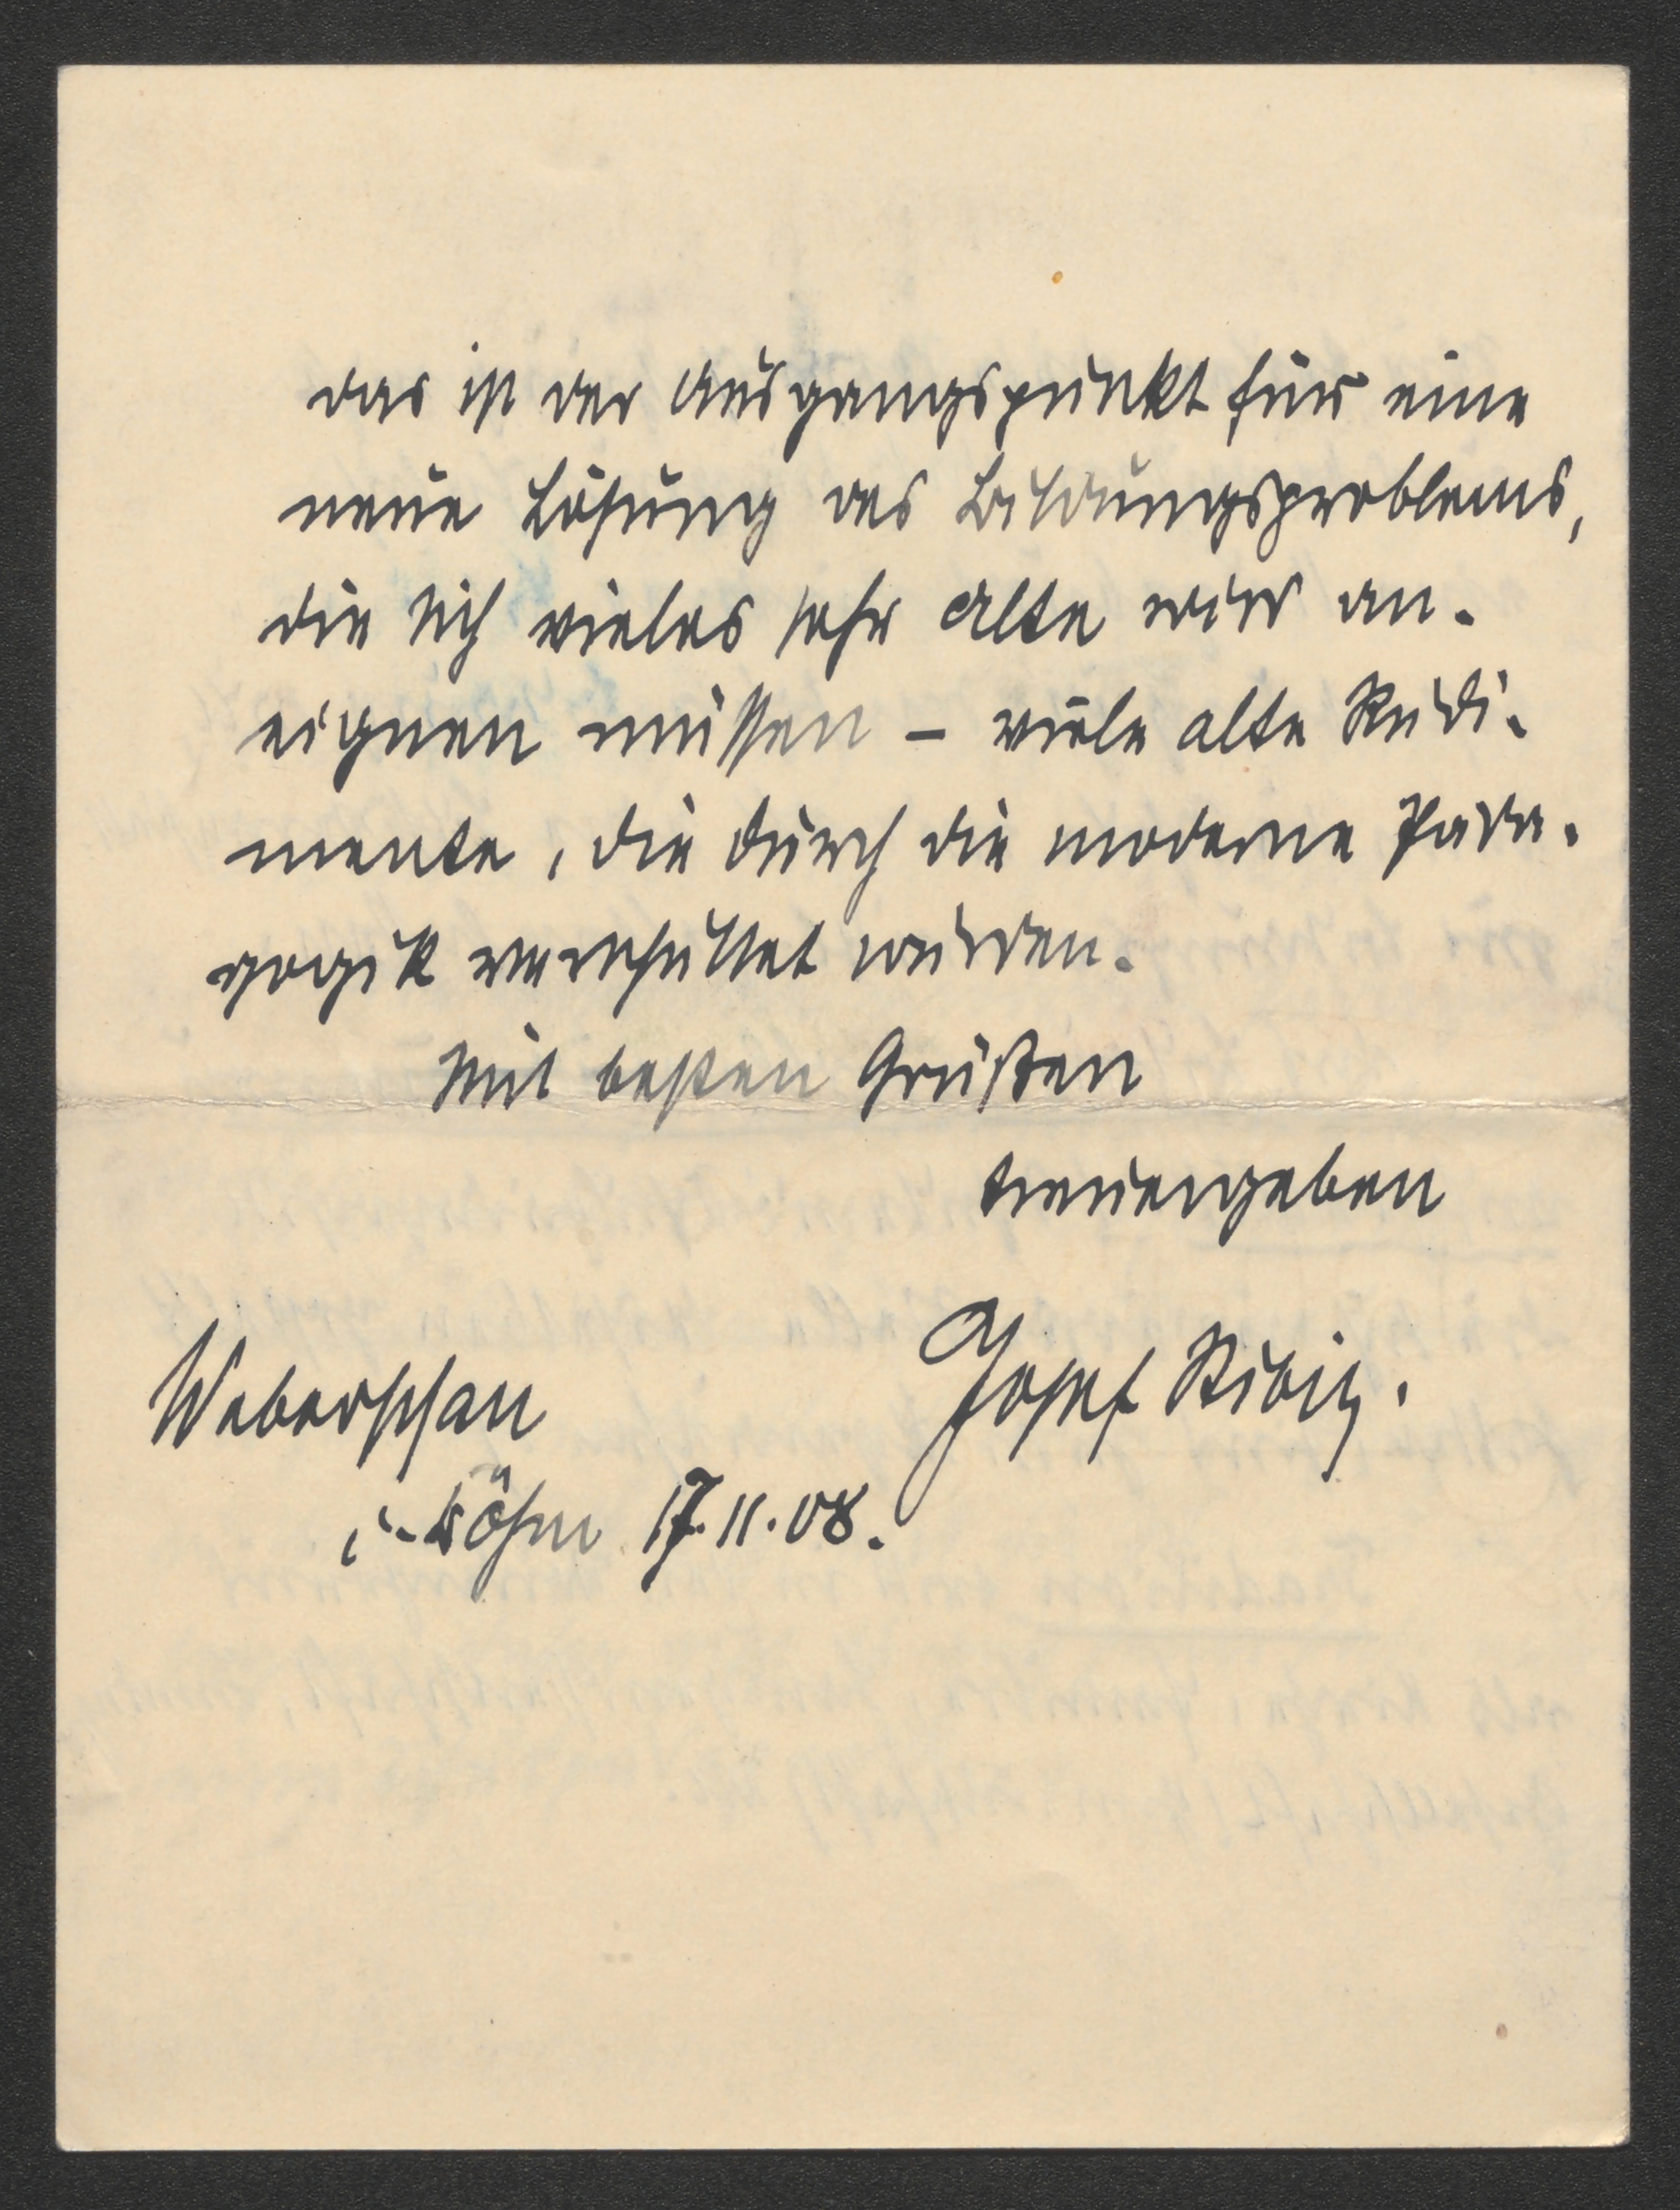 das ist der Ausgangspunkt für eine
neue Lösung des Bildungsproblems,
die sich vieles sehr Alte wird an-
eignen müssen – viele alte Rudi-
mente, die durch die moderne Päda-
gogik verschüttet wurden.
Mit besten Grüßen
treuergeben
Josef
Weberschan
i. Böhm 17.11.08.